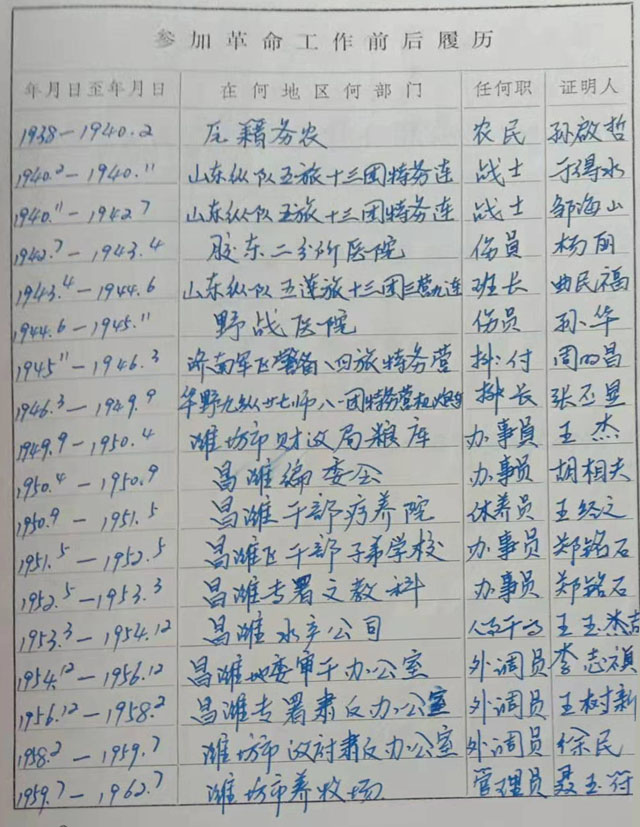 参加革命工作前后履历
年月日至年月日 在何地区何部门 任何职 证明人
1938—1940.2 原籍务农 农民 孙啟哲
1940.2—1940.11 山东纵队五旅十三团特务连 战士 于得水
1940.11—1942.7 山东纵队五旅十三团特务连 战士 邹海山
1942.7—1943.4 胶东二分所医院 伤員 杨丽
1943.4—1944.6 山东纵队五旅十三团三营九连 班长 曲民福
1944.6—1945.11 野战医院 伤员 孙华
1945.11—1946.3 济南军区警备八四旅特务营 排付 周明昌
1946.3—1949.9 华野九纵廿七师八一团特务营机炮连 排长 张丕显
1949.9—1950.4 潍坊市财政局粮库 办事員 王杰
1950.4—1950.9 昌潍编委会 办事员 胡相夫
1950.9—1951.5 昌潍干部疗养院 休养员 王经文
1951.5—1952.5 昌潍区干部子弟学校 办事员 郑铭石
1952.5—1953.3 昌潍专署文教科 办事员 郑铭石
1953.3—1954.12 昌潍水产公司 人事干事 王玉杰
1954.12—1956.12 昌潍地委审干办公室 外调员 李志祯
1956.12—1958.2 昌潍专署肃反办公室 外调员 王树新
1958.2—1959.7 潍坊市政府肃反办公室 外调员 徐民
1959.7—1962.7 潍坊市养牧场 管理员 聂玉符